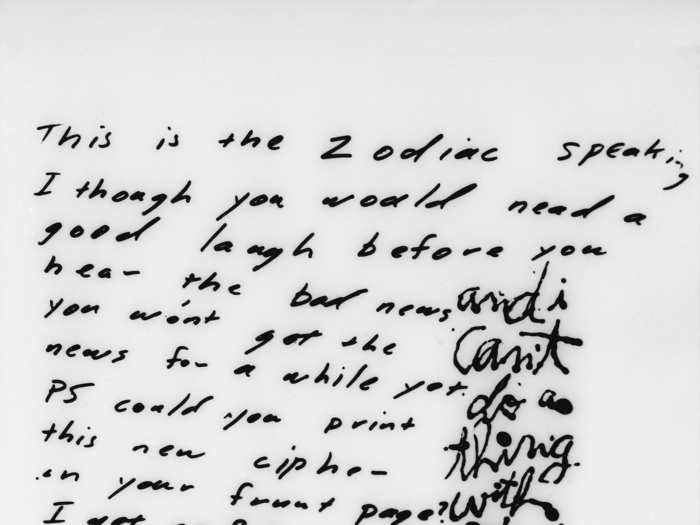 This is the Zodiac speaking
I though you would need a
good laugh before you
hear the bad news
you won't get the
news for a while yet.
PS could you print
this new cipher
on your frunt page?
I
and i
can't
do a
thing
with